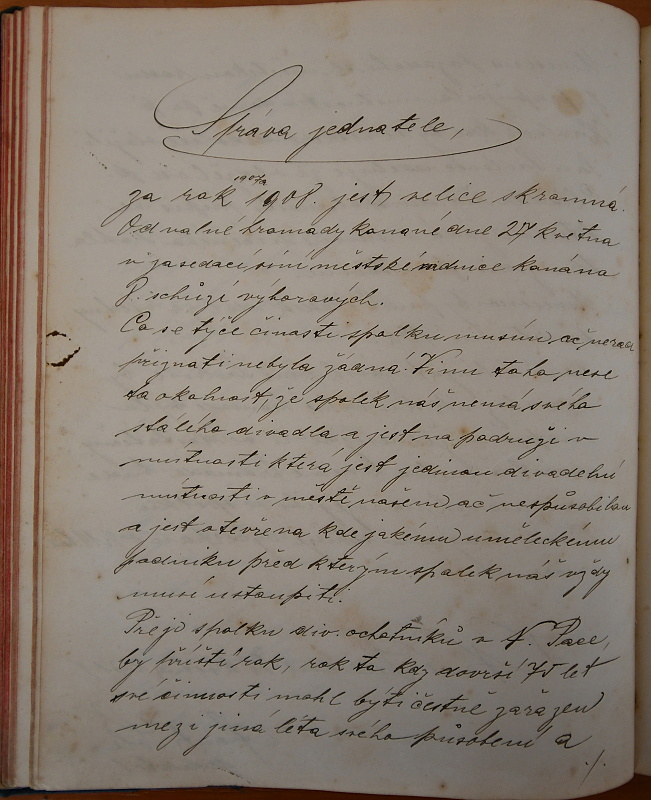 Správa jednatele,
1907/8
za rok 1908. jest velice skromná.
Od valné hromady konané dne 27 května
v zasedací síni městské radnice konána
8. schůzí výborových.
Co se týče činosti spolku musím, ač nerad
přiznati nebyla žádná. Vinu toho nese
ta okolnost, že spolek náš nemá svého
stálého divadla a jest na podruží v
místnosti která jest jedinou divadelní
místností v městě našem, ač nespůsobilou
a jest otevřena kde jakému uměleckému
podniku před kterým spolek náš vždy
musí ustoupiti.
Přeji spolku div. ochotníků v N. Pace,
by příští rok, rok to kdy dovrší 75 let
své činnosti mohl býti čestně zařazen
mezi jiná léta svého působení a
./.